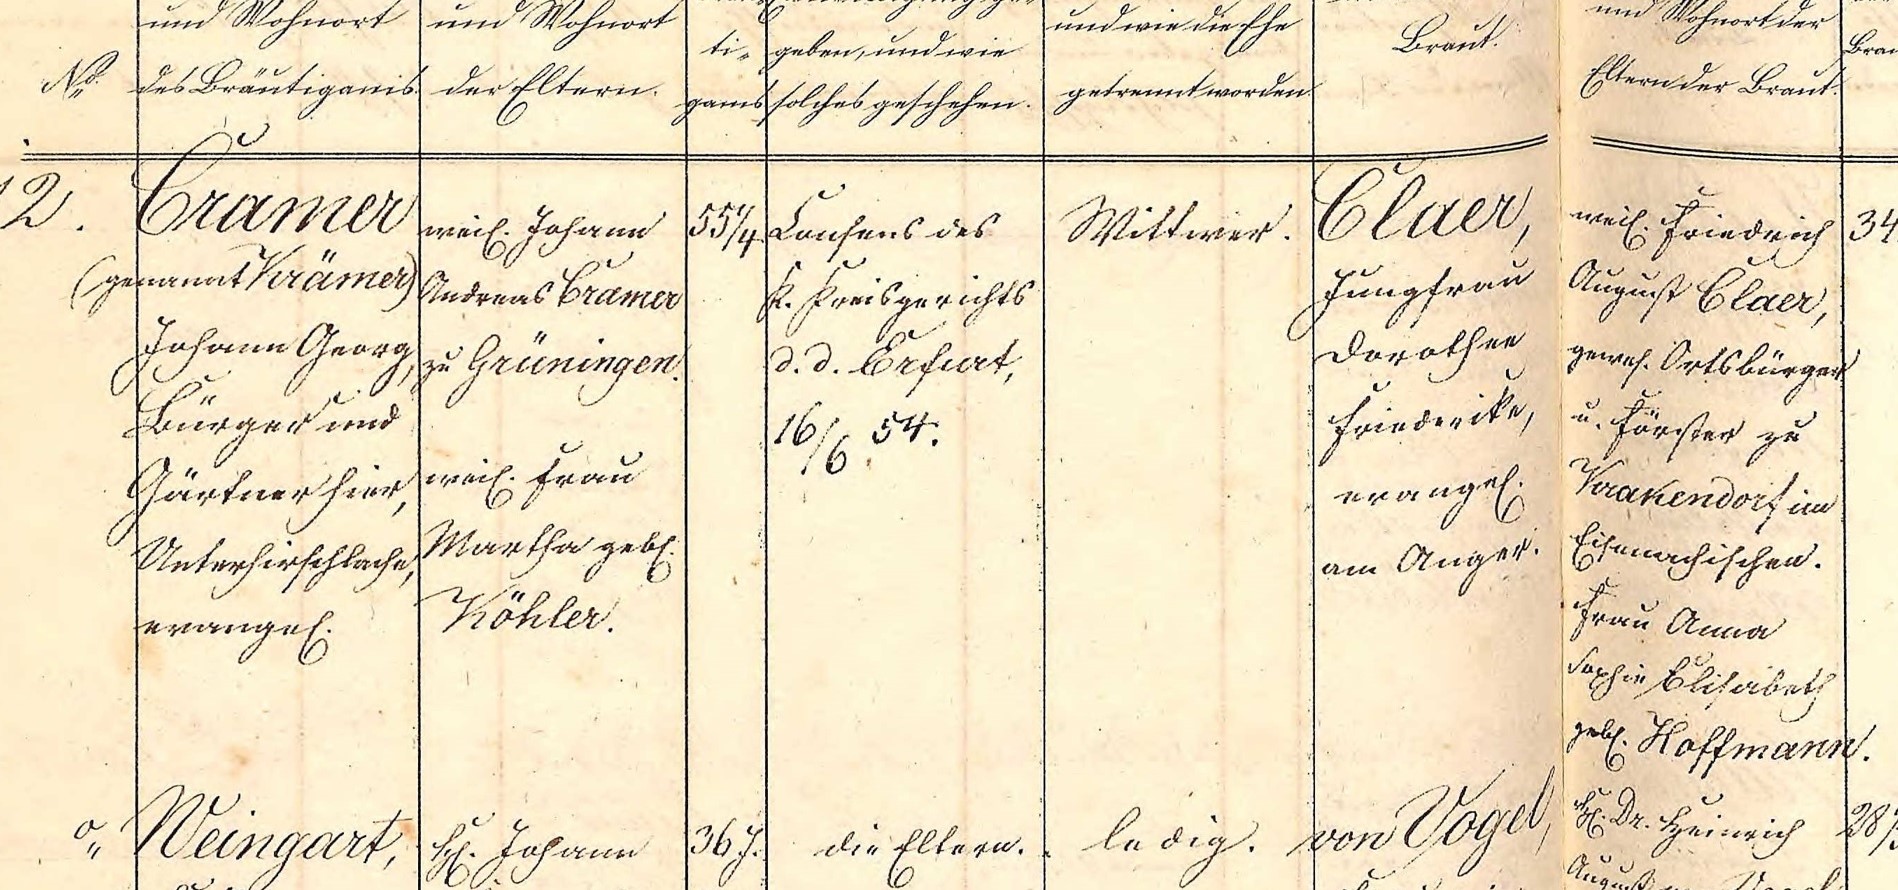 No.
und Wohnort
des Bräutigams.
und Wohnort
der Eltern.
ti-
gams
geben, und wie
solches geschehen.
und wie die Ehe
getrennt worden.
Braut.
und Wohnort der
Eltern der Braut.
Brau
12.
Cramer
(genannt Krämer)
Johann Georg,
Bürger und
Gärtner hier,
Unterhirschlache,
evangel.
weil. Johann
Andreas Cramer
zu Grüningen.
weil. Frau
Martha geb.
Köhler.
55 1/4.
Consens des
K. Kreisgerichts
d. d. Erfurt,
16/6 54.
Wittwer.
Claer,
Jungfrau
Dorothee
Friederike,
evangel.
am Anger.
weil. Friedrich
August Claer,
gewes. Ortsbürger
u. Förster zu
Krakendorf im
Eisenachischen.
Frau Anna
Sophie Elisabeth
geb. Hoffmann.
34
Weingart,
H. Johann
36 J.
die Eltern.
ledig.
von Vogel,
H. Dr. Heinrich
August
28